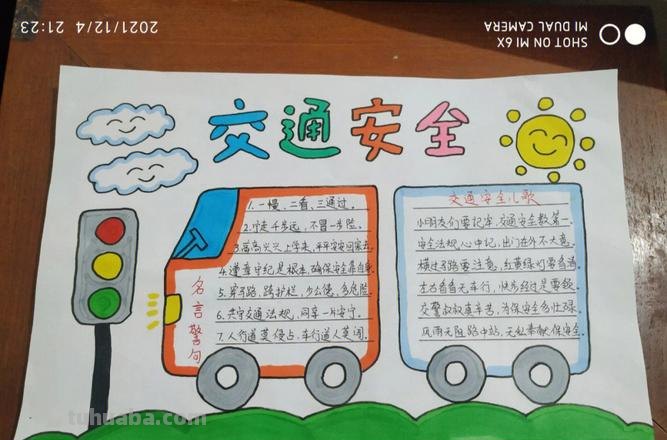 2021/12/4 21:23
SHOT ON MI 6X
MI DUAL CAMERA
交通安全
名言警句
1. 一慢、二看、三通过。
2. 宁走千步远，不冒一步险。
3. 高高兴兴上学来，平平安安回家去。
4. 遵章守纪是根本，确保安全靠自身。
5. 穿马路，跨护栏，少公德，多危险。
6. 共守交通法规，同享一片安宁。
7. 人行道莫侵占，车行道人莫闯。
交通安全儿歌
小朋友们要记牢，交通安全数第一。
安全法规心中记，出门在外不大意。
横过马路要注意，红黄绿灯要看清。
左右看看无车行，快步经过是要领。
交警叔叔真辛苦，为保安全多忙碌。
风雨无阻路中站，无私奉献保安全。
tuhuaba.com